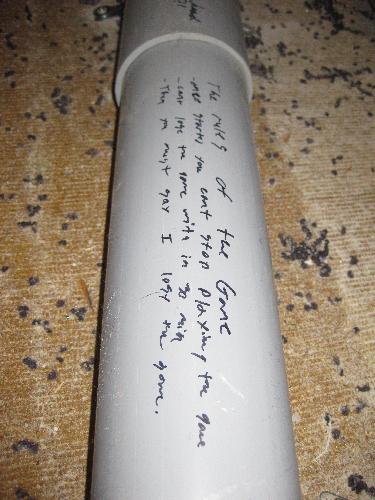 The rules of the Game
- once started you cant stop playing the game
- cant lose the game with in 30 min
- Then you must say I lost the game.